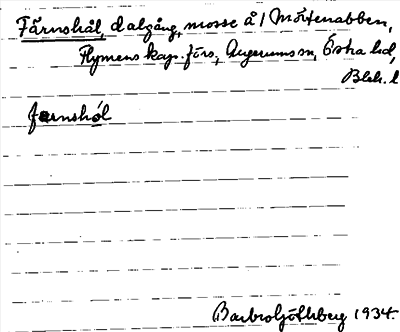 Färnshål, dalgång, mosse å 1 Mörtenabben,
Flymens kap.förs, Augerums sn, Östra hd,
Blek. l
farnshól
Barbro Göthberg 1934.